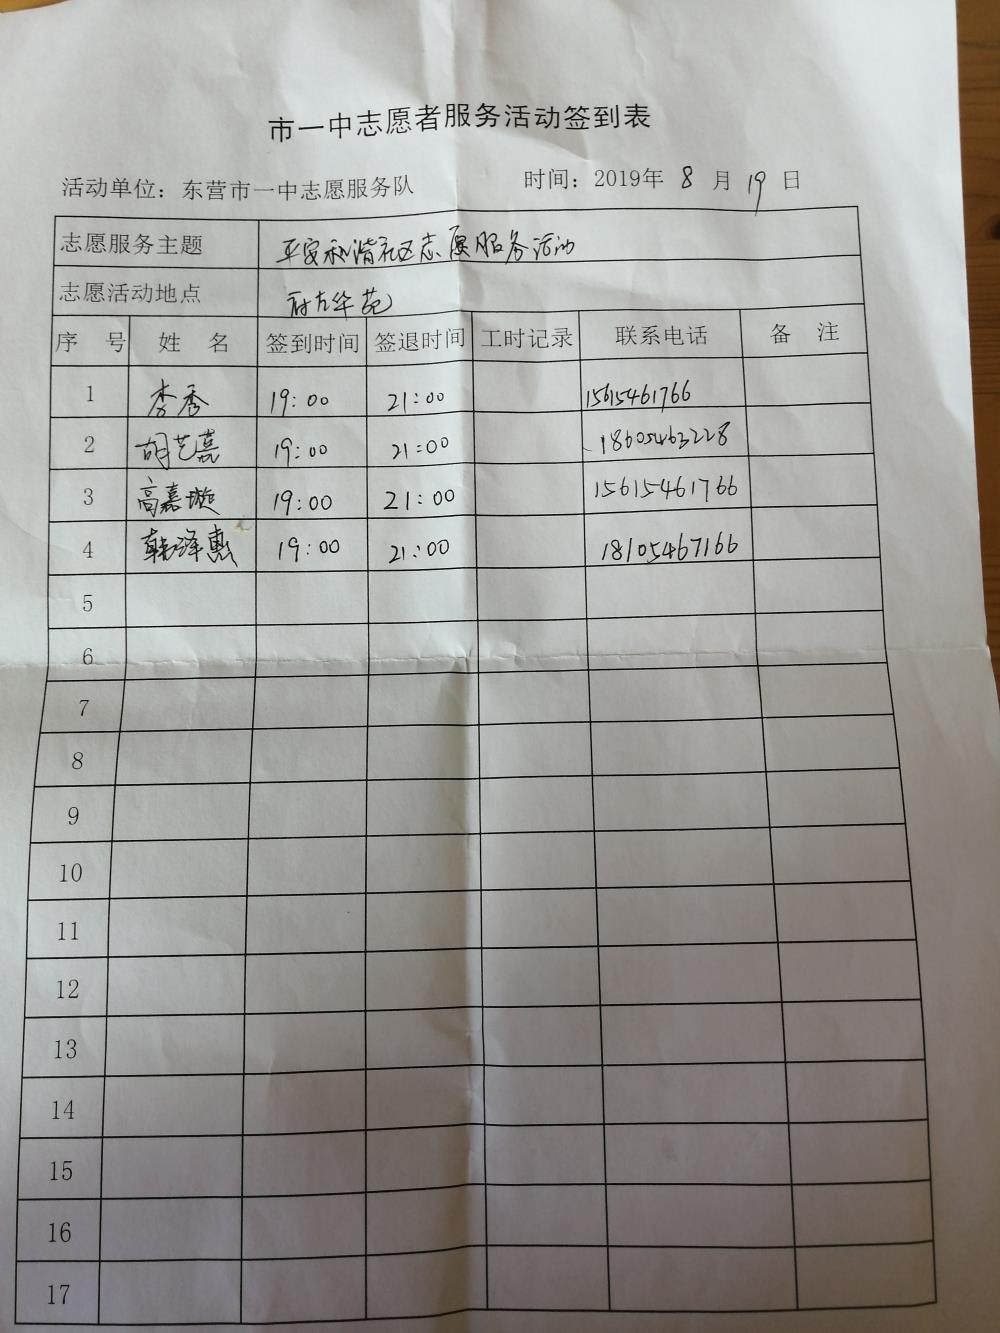 市一中志愿者服务活动签到表
活动单位：东营市一中志愿服务队 时间：2019年 8 月 19 日
志愿服务主题 平安和谐社区志愿服务活动
志愿活动地点 府左华苑
序 号 姓 名 签到时间 签退时间 工时记录 联系电话 备 注
1 李秀 19:00 21:00 15615461766
2 胡艺嘉 19:00 21:00 18605463228
3 高嘉璇 19:00 21:00 15615461766
4 韩泽惠 19:00 21:00 18105467166
5
6
7
8
9
10
11
12
13
14
15
16
17